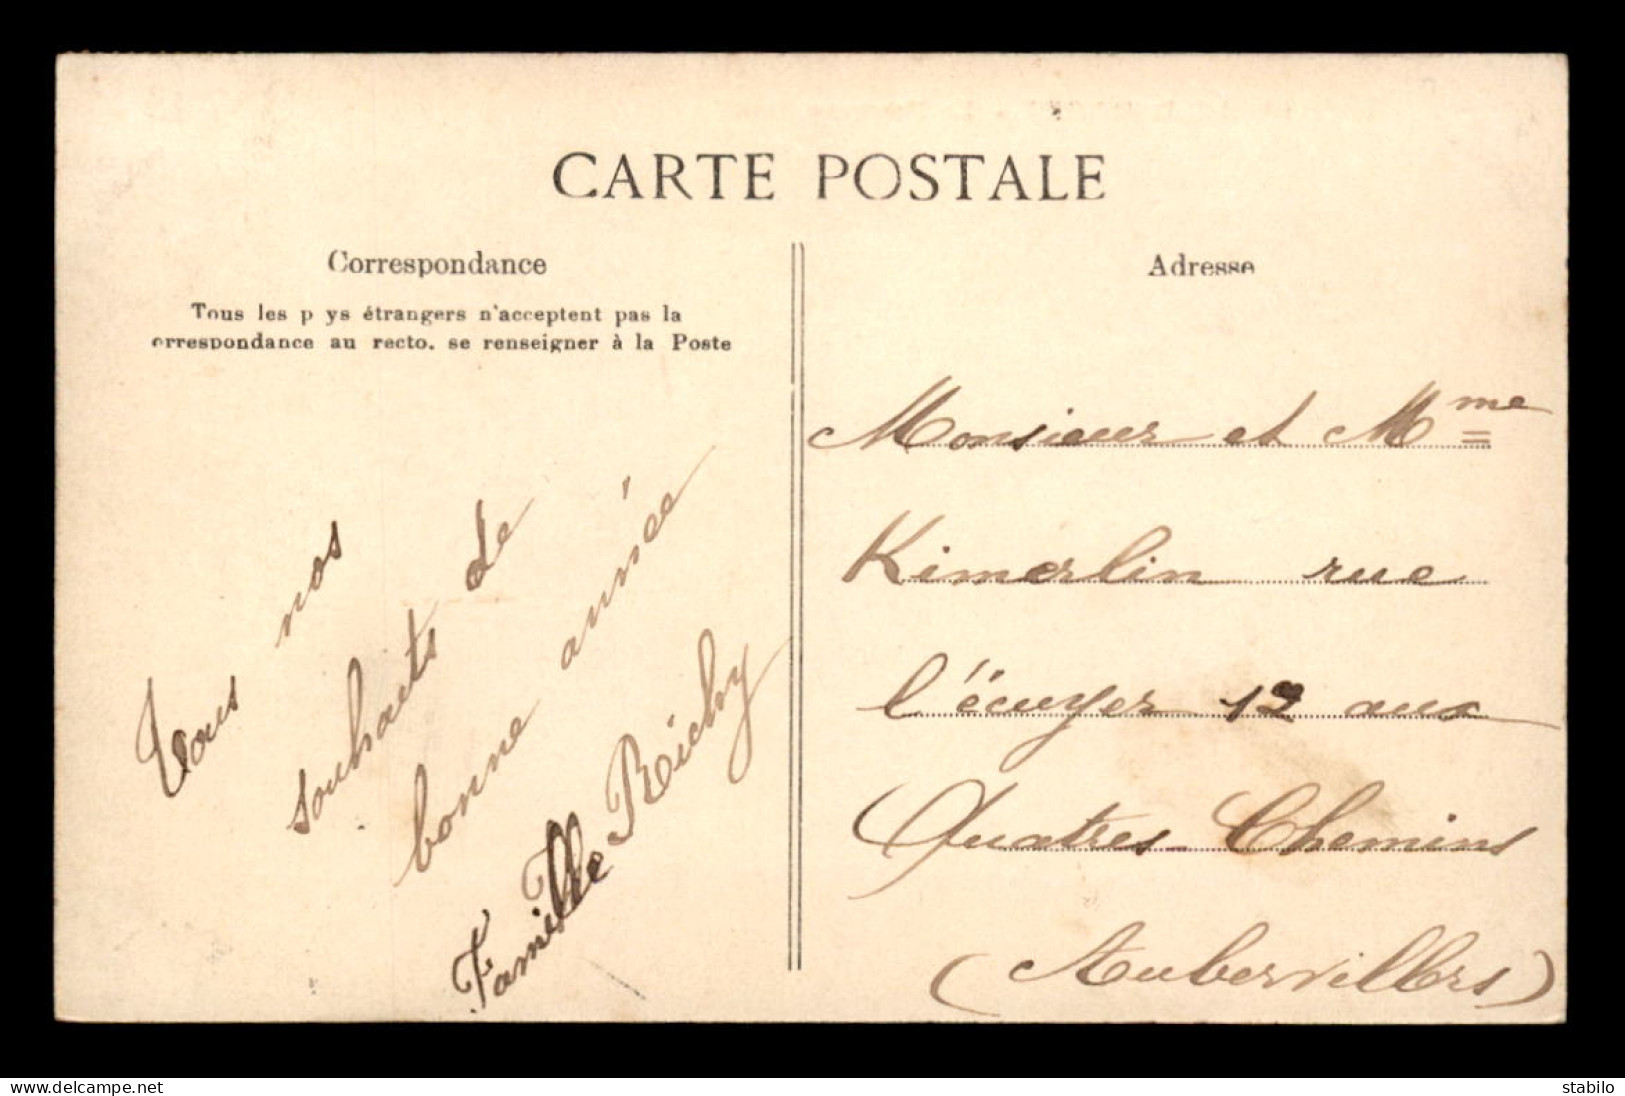 CARTE POSTALE
Correspondance
Tous les p ys étrangers n'acceptent pas la
orrespondance au recto. se renseigner à la Poste
Tous nos
souhaits de
bonne année
Famille Richy
Adresse
Monsieur et Mme
Kimerlin rue
l'écuyer 12 aux
Quatres-Chemins
(Aubervillers)
www.delcampe.net
stabilo